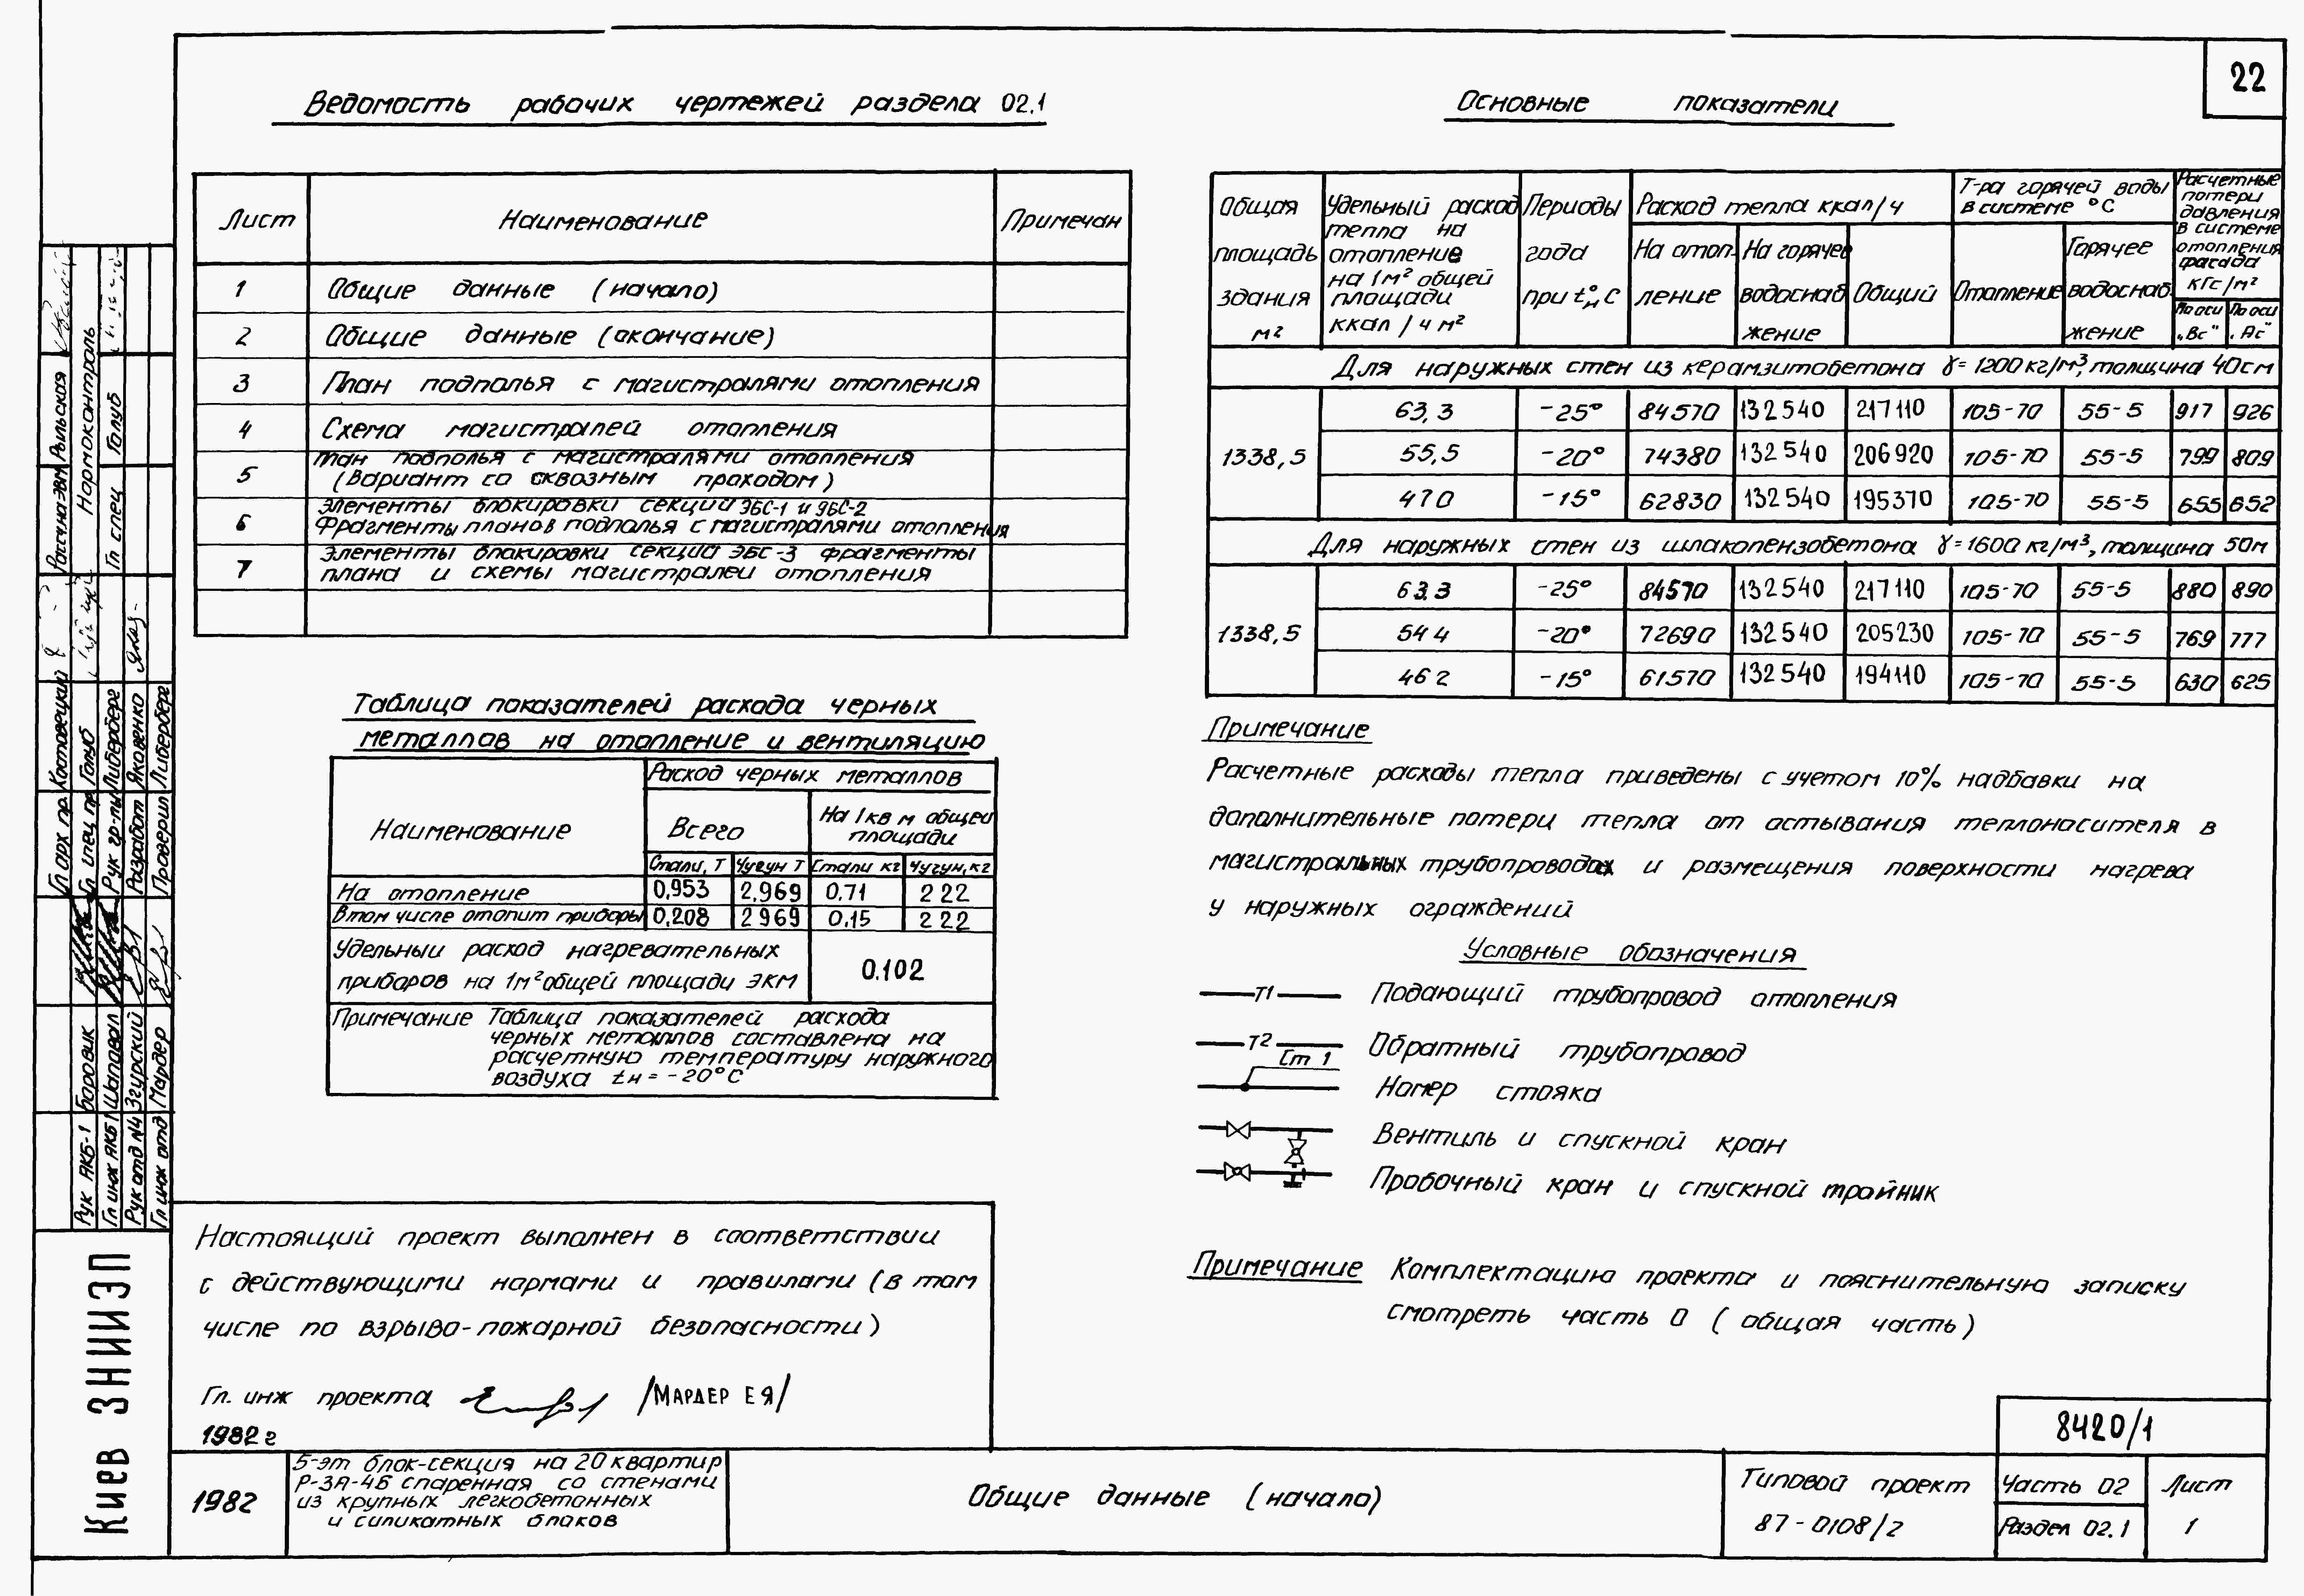 22
Ведомость рабочих чертежей раздела 02.1
Лист Наименование Примечан
1 Общие данные (начало)
2 Общие данные (окончание)
3 План подполья с магистралями отопления
4 Схема магистралей отопления
5 План подполья с магистралями отопления
(Вариант со сквозным проходом)
6 Элементы блокировки секций ЭБС-1 и ЭБС-2
Фрагменты планов подполья с магистралями отопления
7 Элементы блокировки секций ЭБС-3 фрагменты
плана и схемы магистралей отопления
Таблица показателей расхода черных
металлов на отопление и вентиляцию
Наименование
Расход черных металлов
Всего
На 1кв м общей
площади
Стали, Т Чугун Т Стали кг Чугун, кг
На отопление 0,953 2,969 0,71 2 22
В том числе отопит приборы 0,208 2 969 0,15 2 22
Удельный расход нагревательных
приборов на 1м² общей площади экм
0.102
Примечание Таблица показателей расхода
черных металлов составлена на
расчетную температуру наружного
воздуха tн = -20°С
Настоящий проект выполнен в соответствии
с действующими нормами и правилами (в том
числе по взрыво-пожарной безопасности)
Гл. инж проекта /МАРДЕР Е Я/
1982 г
Основные показатели
Общая
площадь
здания
м²
Удельный расход
тепла на
отопление
на 1м² общей
площади
ккал / ч м²
Периоды
года
при tн° С
Расход тепла ккал/ч
На отоп-
ление
На горячее
водоснаб
жение
Общий
Т-ра горячей воды
в системе °С
Отопление
Горячее
водоснаб-
жение
Расчетные
потери
давления
в системе
отопления
фасада
кгс/м²
По оси
„Вс"
По оси
„Ас"
Для наружных стен из керамзитобетона γ= 1200 кг/м³, толщина 40см
1338,5
63,3 -25° 84570 132540 217110 105-70 55-5 917 926
55,5 -20° 74380 132540 206920 105-70 55-5 799 809
47 0 -15° 62830 132540 195370 105-70 55-5 655 652
Для наружных стен из шлакопензобетона γ=1600 кг/м³, толщина 50м
1338,5
63.3 -25° 84570 132540 217110 105-70 55-5 880 890
54 4 -20° 72690 132540 205230 105-70 55-5 769 777
46 2 -15° 61570 132540 194110 105-70 55-5 630 625
Примечание
Расчетные расходы тепла приведены с учетом 10% надбавки на
дополнительные потери тепла от остывания теплоносителя в
магистральных трубопроводах и размещения поверхности нагрева
у наружных ограждений
Условные обозначения
Т1 Подающий трубопровод отопления
Т2 Обратный трубопровод
Ст 1 Номер стояка
Вентиль и спускной кран
Пробочный кран и спускной тройник
Примечание Комплектацию проекта и пояснительную записку
смотреть часть 0 (общая часть)
8420/1
1982
5-эт блок-секция на 20 квартир
Р-3А-4Б спаренная со стенами
из крупных легкобетонных
и силикатных блоков
Общие данные (начало)
Типовой проект
87-0108/2
Часть 02
Раздел 02.1
Лист
1
Киев ЗНИИЭП
Рук АКБ-1 Боровик
Гл инж АКБ 1 Шаповал
Рук отд №4 Згурский
Гл инж отд Мардер
Гл арх пр. Котовецкий
Гл спец пр Голуб
Рук гр-пы Либербере
Разработ Яковенко
Проверил Либербере
Рыльская
Нормоконтроль
Гл спец Голуб